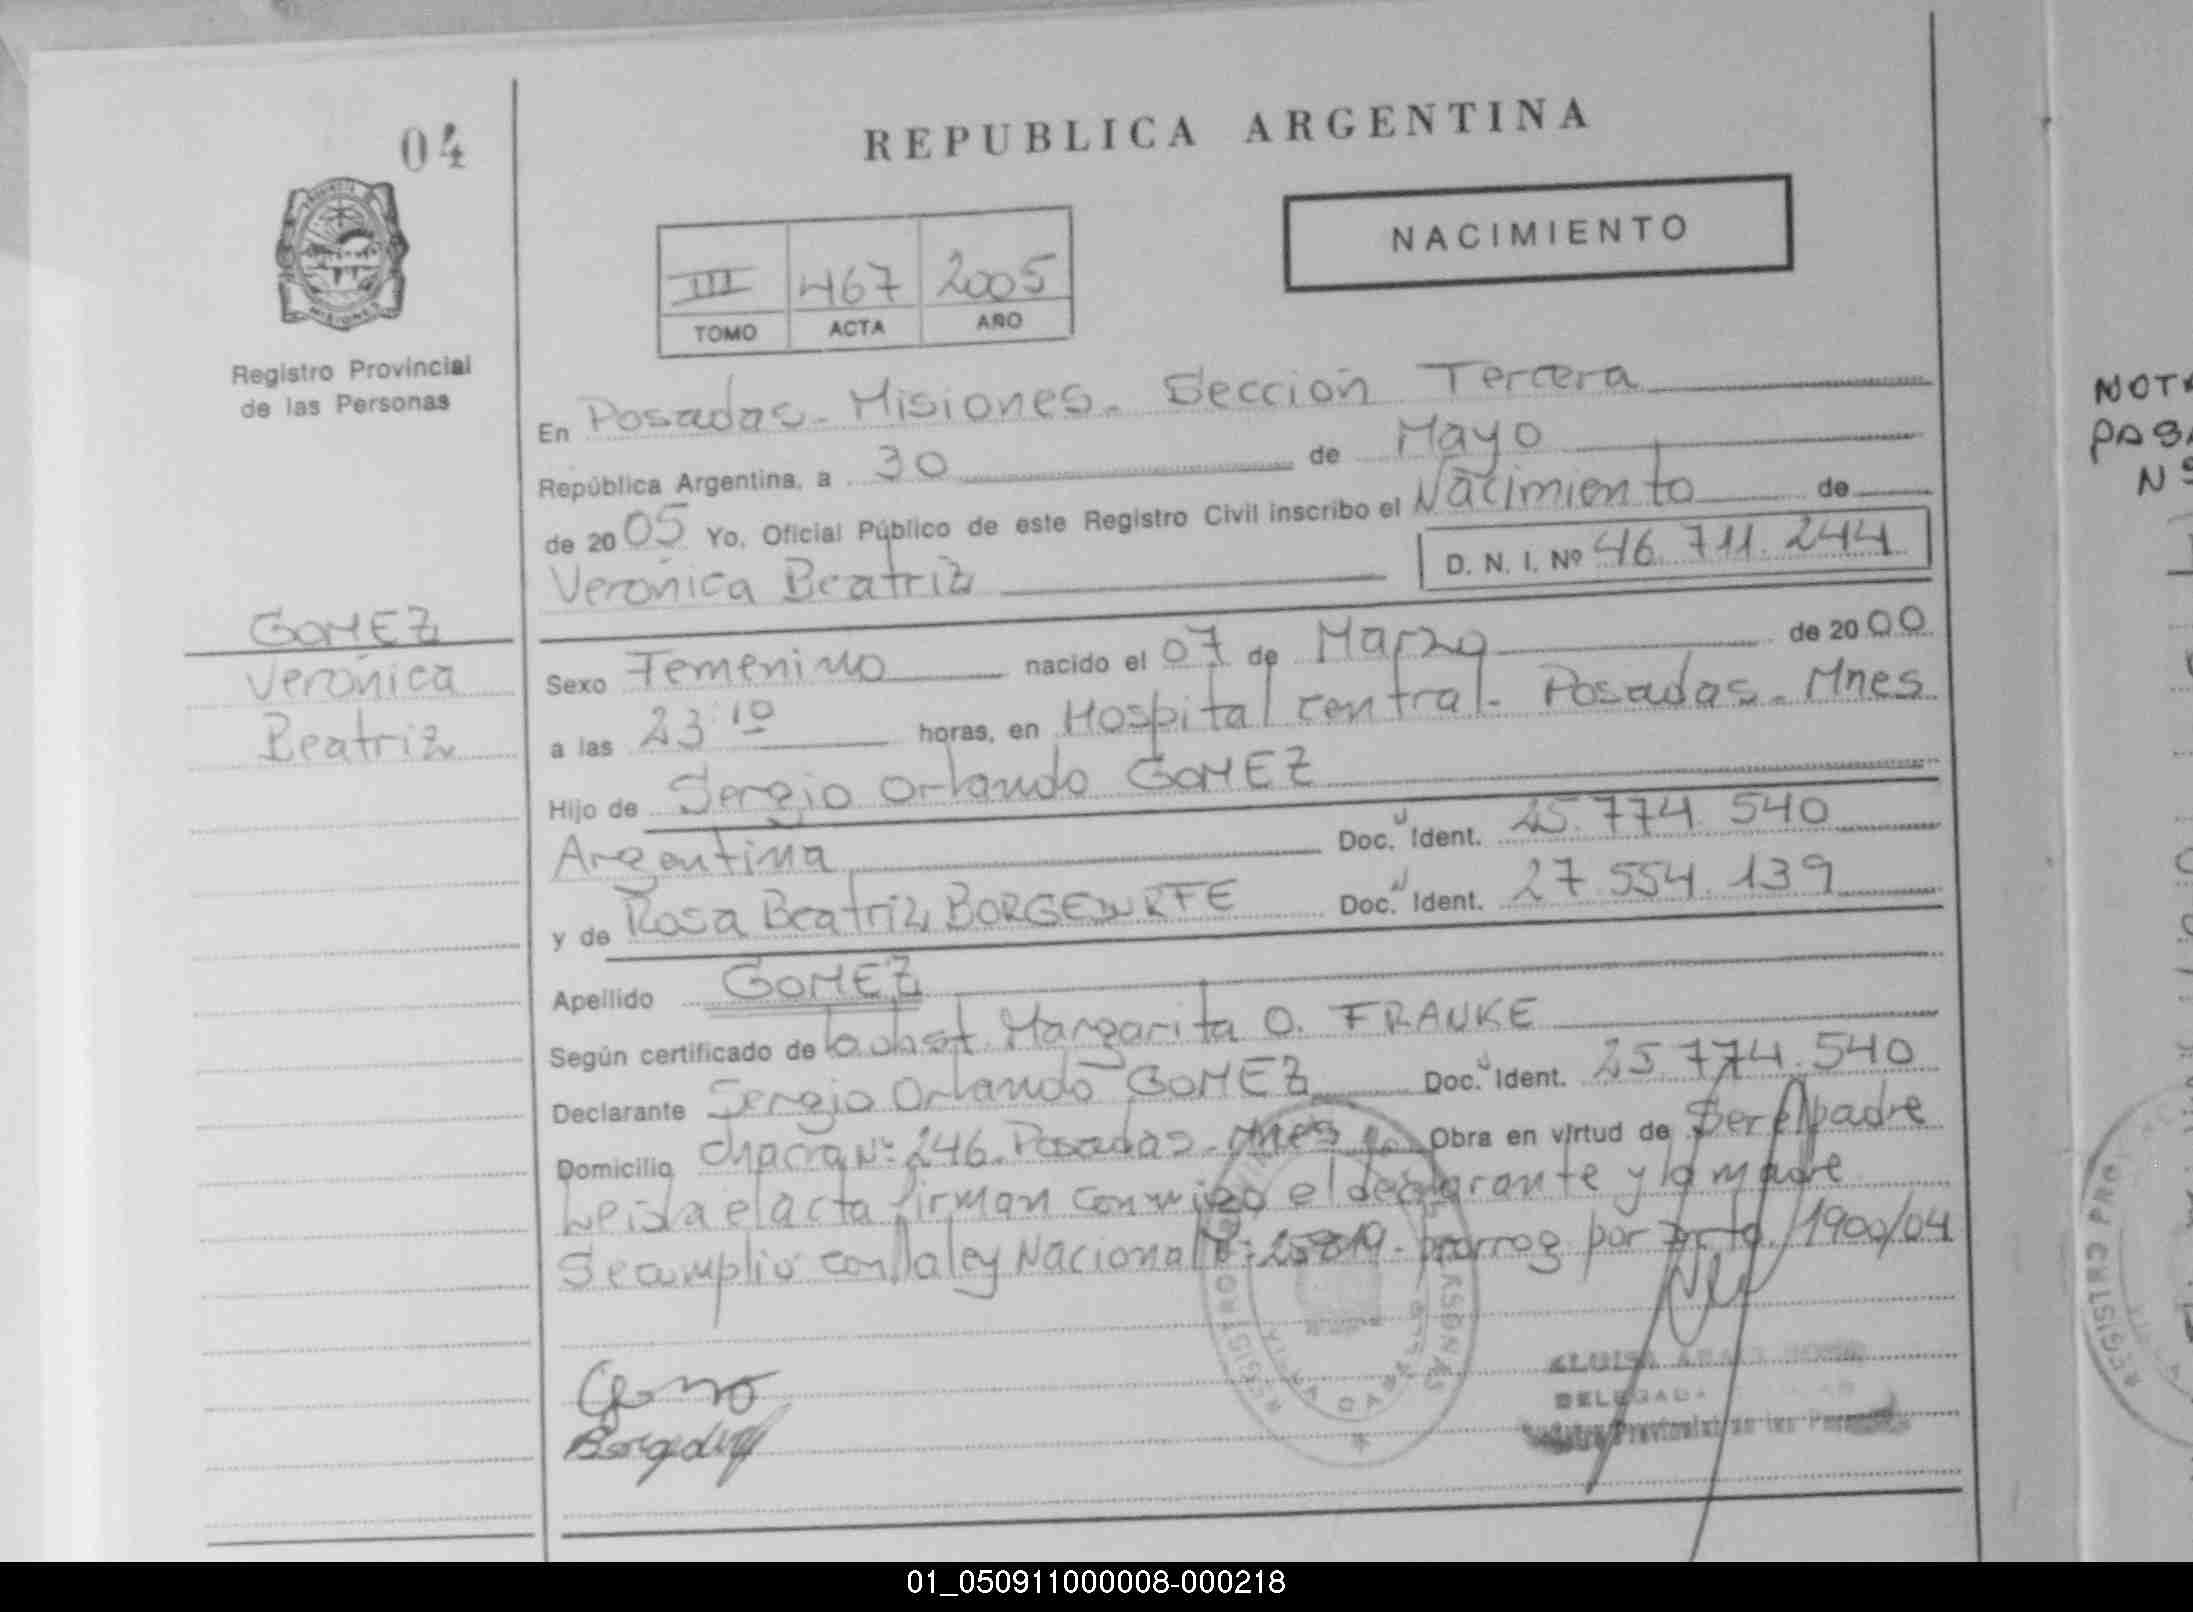 04
REPUBLICA ARGENTINA
NACIMIENTO
III 467 2005
TOMO ACTA AÑO
Registro Provincial
de las Personas
En Posadas - Misiones - Sección Tercera
República Argentina, a 30 de Mayo
de 2005 Yo, Oficial Público de este Registro Civil inscribo el Nacimiento de
Verónica Beatriz D. N. I. Nº 46.711.244
GOMEZ
Verónica
Beatriz
Sexo Femenino nacido el 07 de Marzo de 2000
a las 23:10 horas, en Hospital central - Posadas - Mnes
Hijo de Sergio Orlando GOMEZ
Argentina Doc. Ident. 25.774.540
y de Rosa Beatriz Doc. Ident. 27.554.139
Apellido GOMEZ
Según certificado de la obst. Margarita O. FRANKE
Declarante Sergio Orlando GOMEZ Doc. Ident. 25.774.540
Domicilio chacra Nº: 246. Posadas - Mnes Obra en virtud de Ser el padre
Leida el acta firman conmigo el declarante y la madre
Se cumplió con la ley Nacional Nº: 25819 - prorrog por 1900/04
REGISTRO
DELEGADA
Registro Provincial de las Personas
NOT
PASA
Nº
REGISTRO PRO
01_050911000008-000218